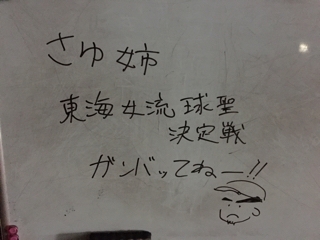 さゆ姉
東海女流球聖
決定戦
ガンバッてねー!!